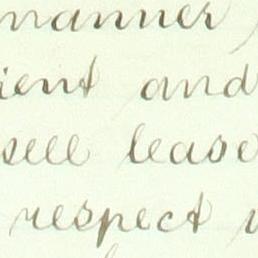 manner,
ient and
sell lease
respect